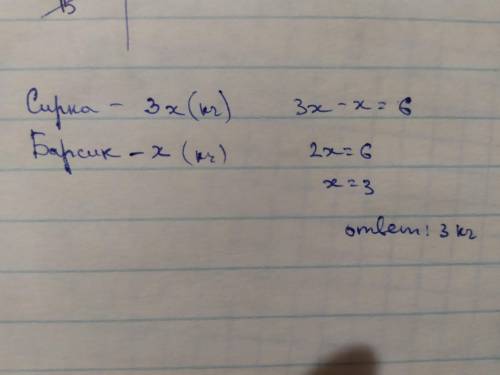 Сирка - 3x (кг) 3x - x = 6
Барсик - x (кг) 2x = 6
x = 3
ответ: 3 кг